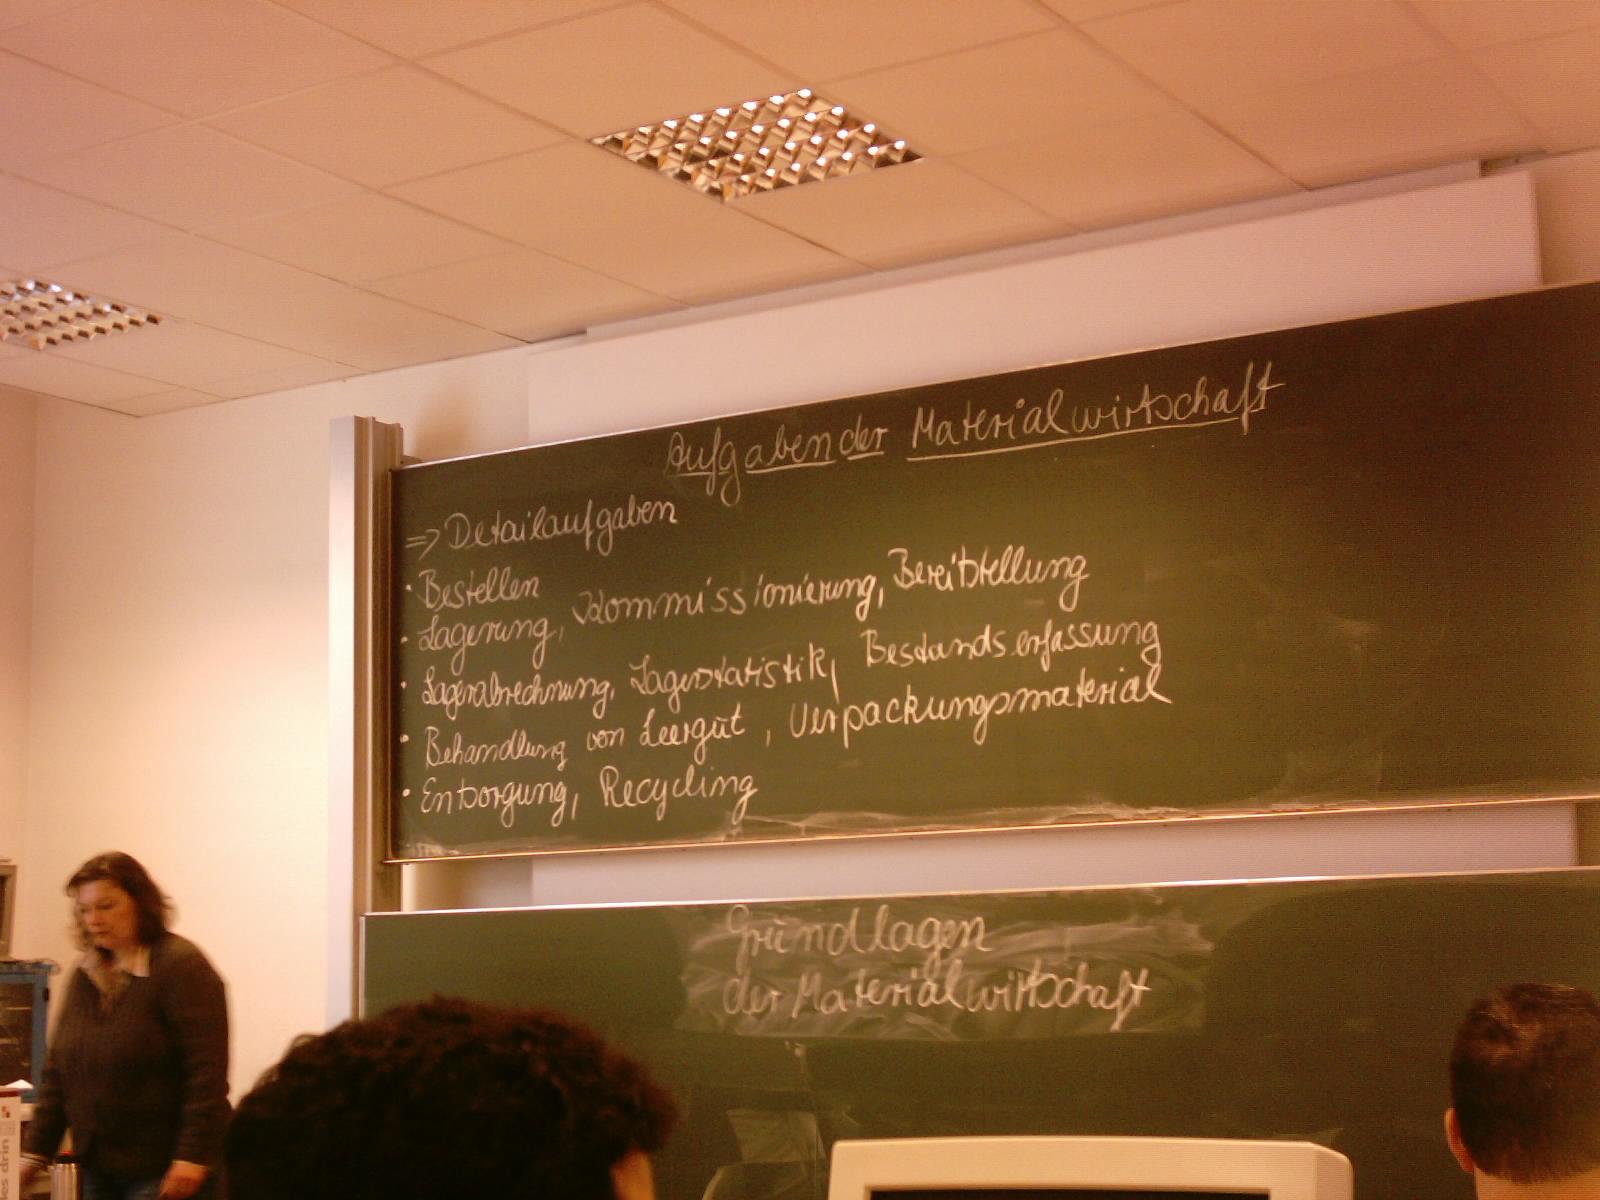 Aufgaben der Materialwirtschaft
=> Detailaufgaben
· Bestellen
· Lagerung, Kommissionierung, Bereitstellung
· Lagerabrechnung, Lagerstatistik, Bestandserfassung
· Behandlung von Leergut, Verpackungsmaterial
· Entsorgung, Recycling
Grundlagen
der Materialwirtschaft
les drin